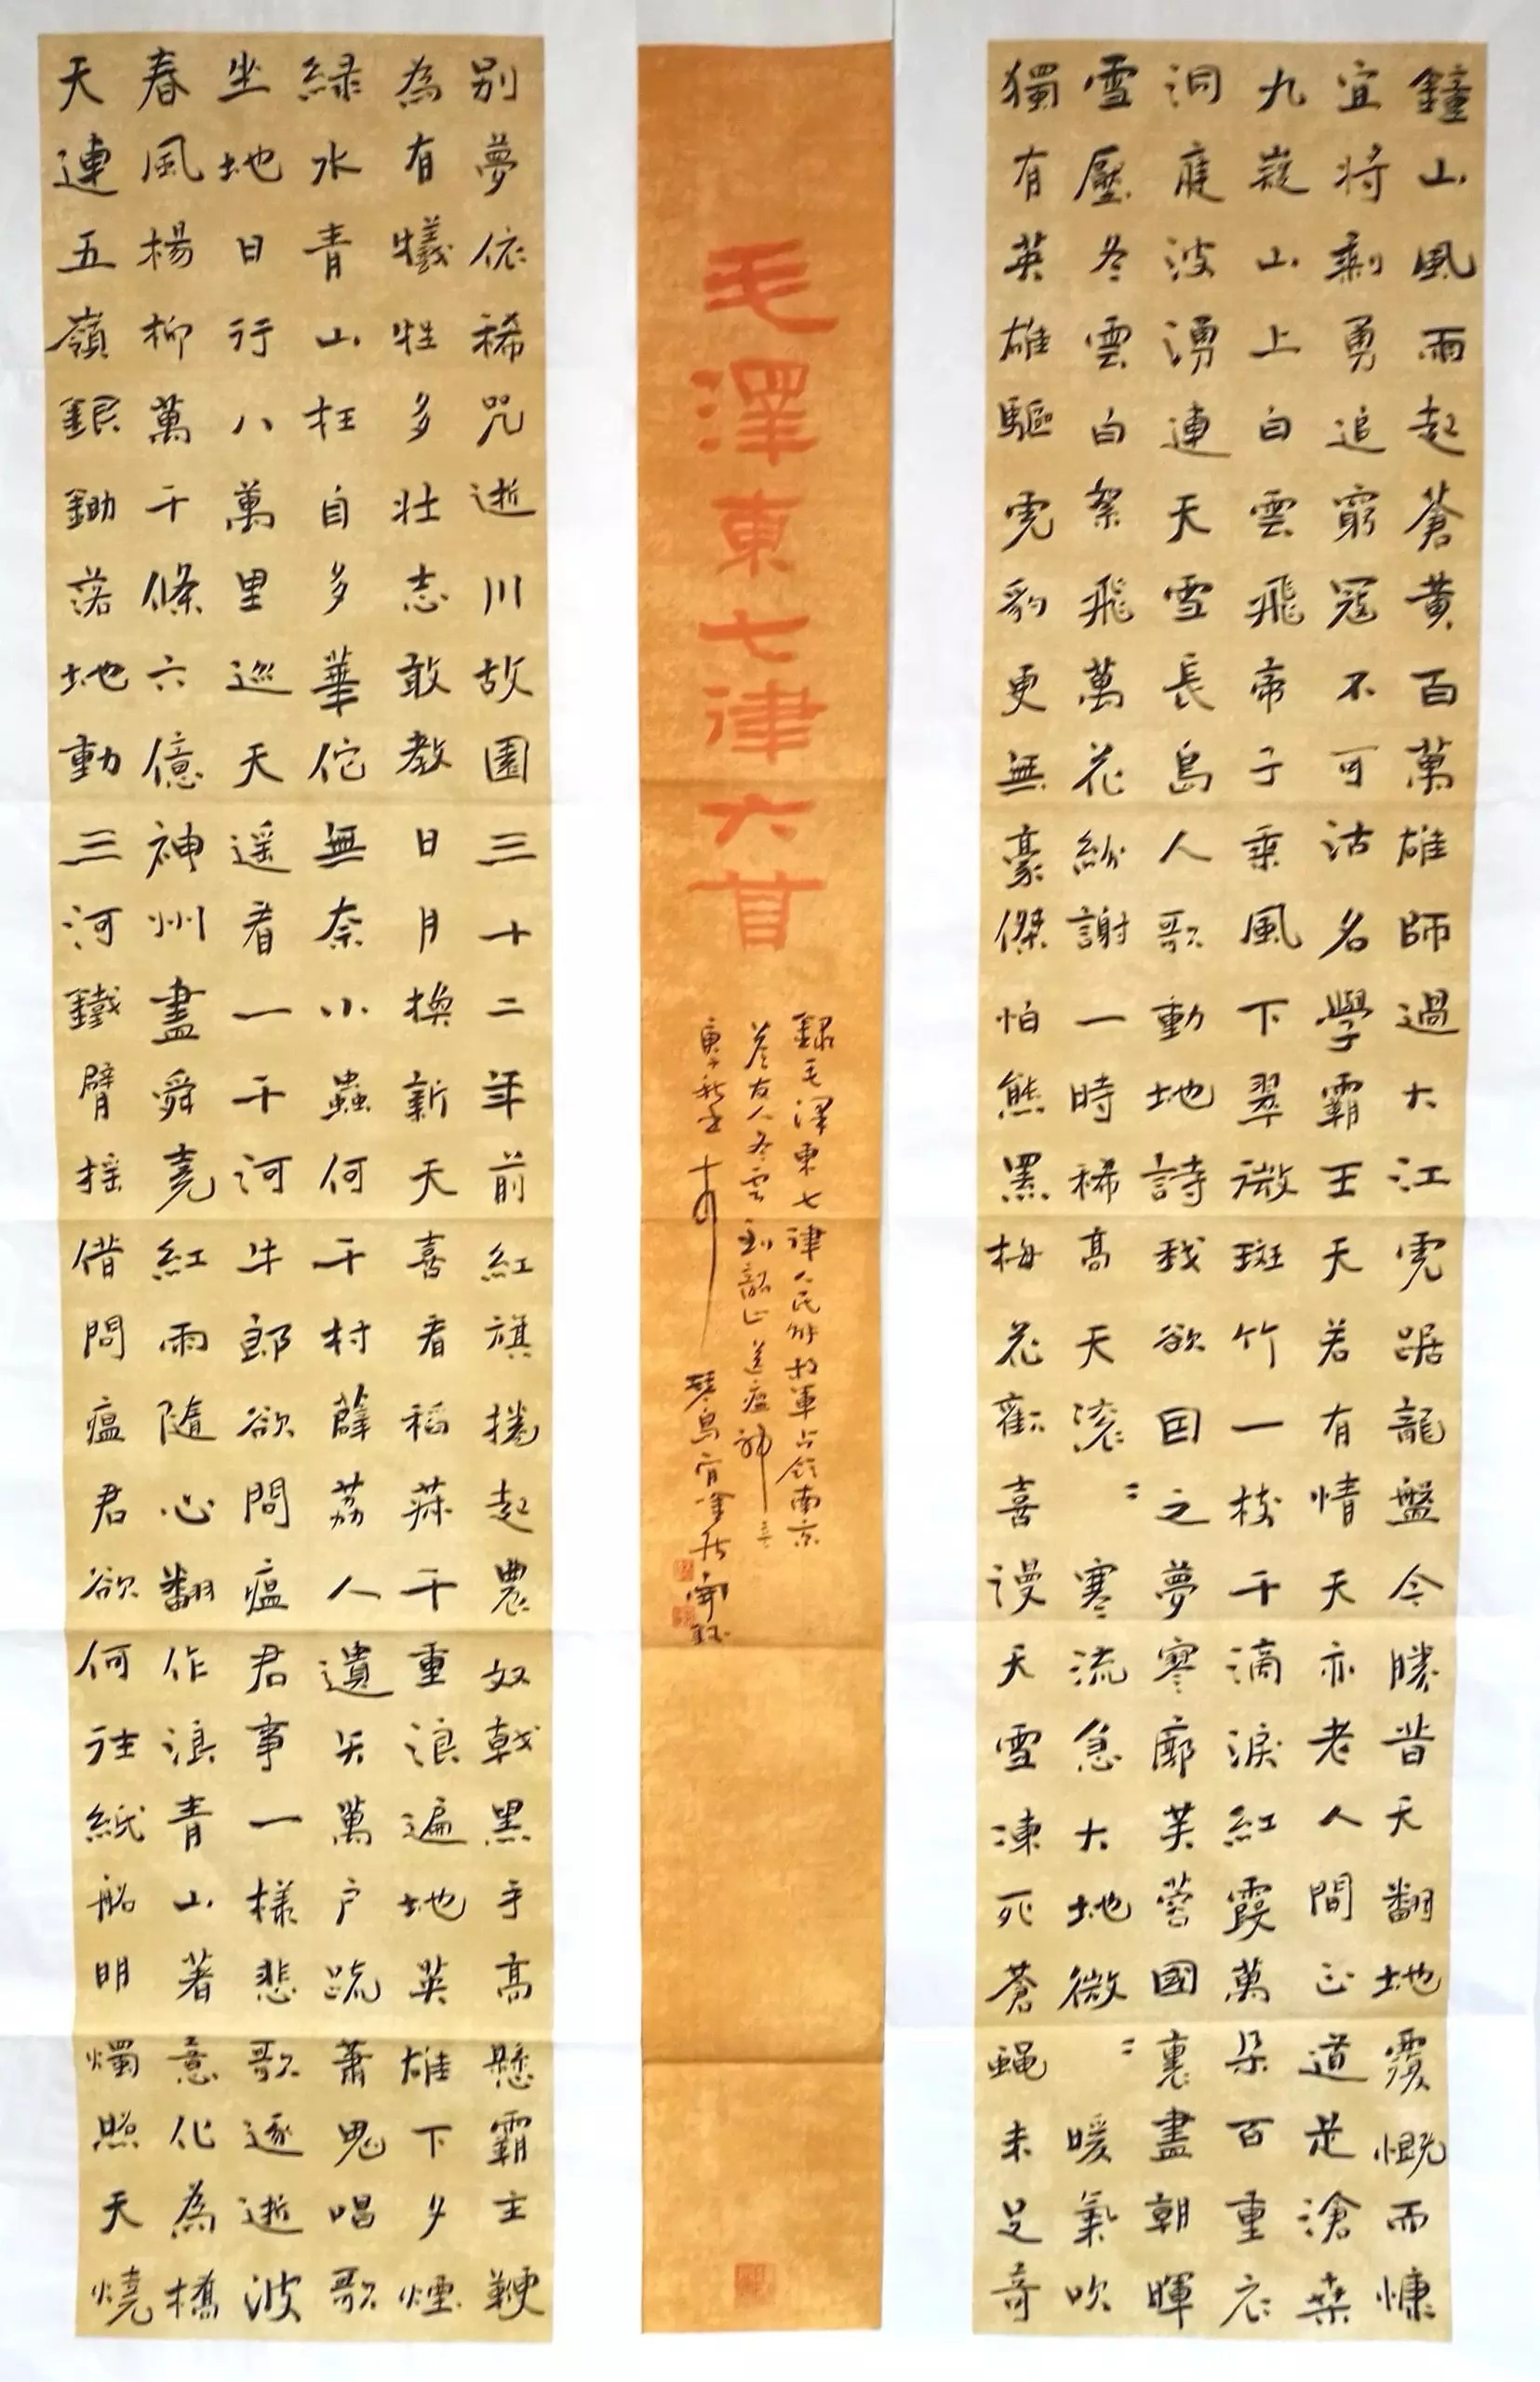 鐘山風雨起蒼黄百萬雄師過大江虎踞龍盤今勝昔天翻地覆慨而慷
宜將剩勇追窮寇不可沽名學霸王天若有情天亦老人間正道是滄桑
九嶷山上白雲飛帝子乘風下翠微斑竹一枝千滴淚紅霞萬朵百重衣
洞庭波湧連天雪長島人歌動地詩我欲因之夢寥廓芙蓉國裏盡朝暉
雪壓冬雲白絮飛萬花紛謝一時稀高天滚〻寒流急大地微〻暖氣吹
獨有英雄驅虎豹更無豪傑怕熊羆梅花歡喜漫天雪凍死蒼蝇未足奇
毛澤東七律六首
録毛澤東七律人民解放軍占領南京
答友人冬雲到韶山送瘟神二首
庚子秋
别夢依稀咒逝川故園三十二年前紅旗捲起農奴戟黑手高懸霸主鞭
為有犧牲多壯志敢教日月換新天喜看稻菽千重浪遍地英雄下夕煙
緑水青山枉自多華佗無奈小蟲何千村薜荔人遺矢萬户蕭疏鬼唱歌
坐地日行八萬里巡天遥看一千河牛郎欲問瘟君事一樣悲歌逐逝波
春風楊柳萬千條六億神州盡舜堯紅雨隨心翻作浪青山著意化為橋
天連五嶺銀鋤落地動三河鐵臂摇借問瘟君欲何往紙船明燭照天燒